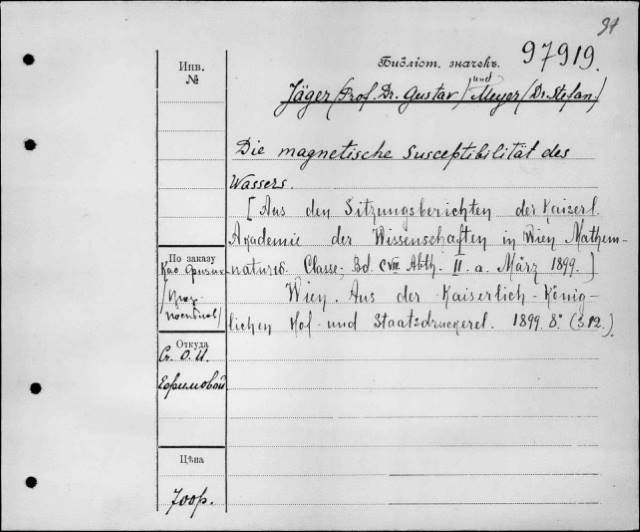 91
Библіот. значекъ. 97919.
Инв.
№
Jäger/Prof. Dr. Gustav/ und Meyer/Dr. Stefan/
Die magnetische Susceptibilität des
Wassers.
[Aus den Sitzungsberichten der Kaiserl.
Akademie der Wissenschaften in Wien Mathem-
naturw. Classe, Bd. CVIII Abth. II. a. März 1899.]
Wien. Aus der Kaiserlich-König-
lichen Hof- und Staatsdruckerei. 1899. 8º. (S. 12.)
По заказу
Каб. физик
Откуда
Ст. О. И.
Ефимовой
Цѣна
700р.